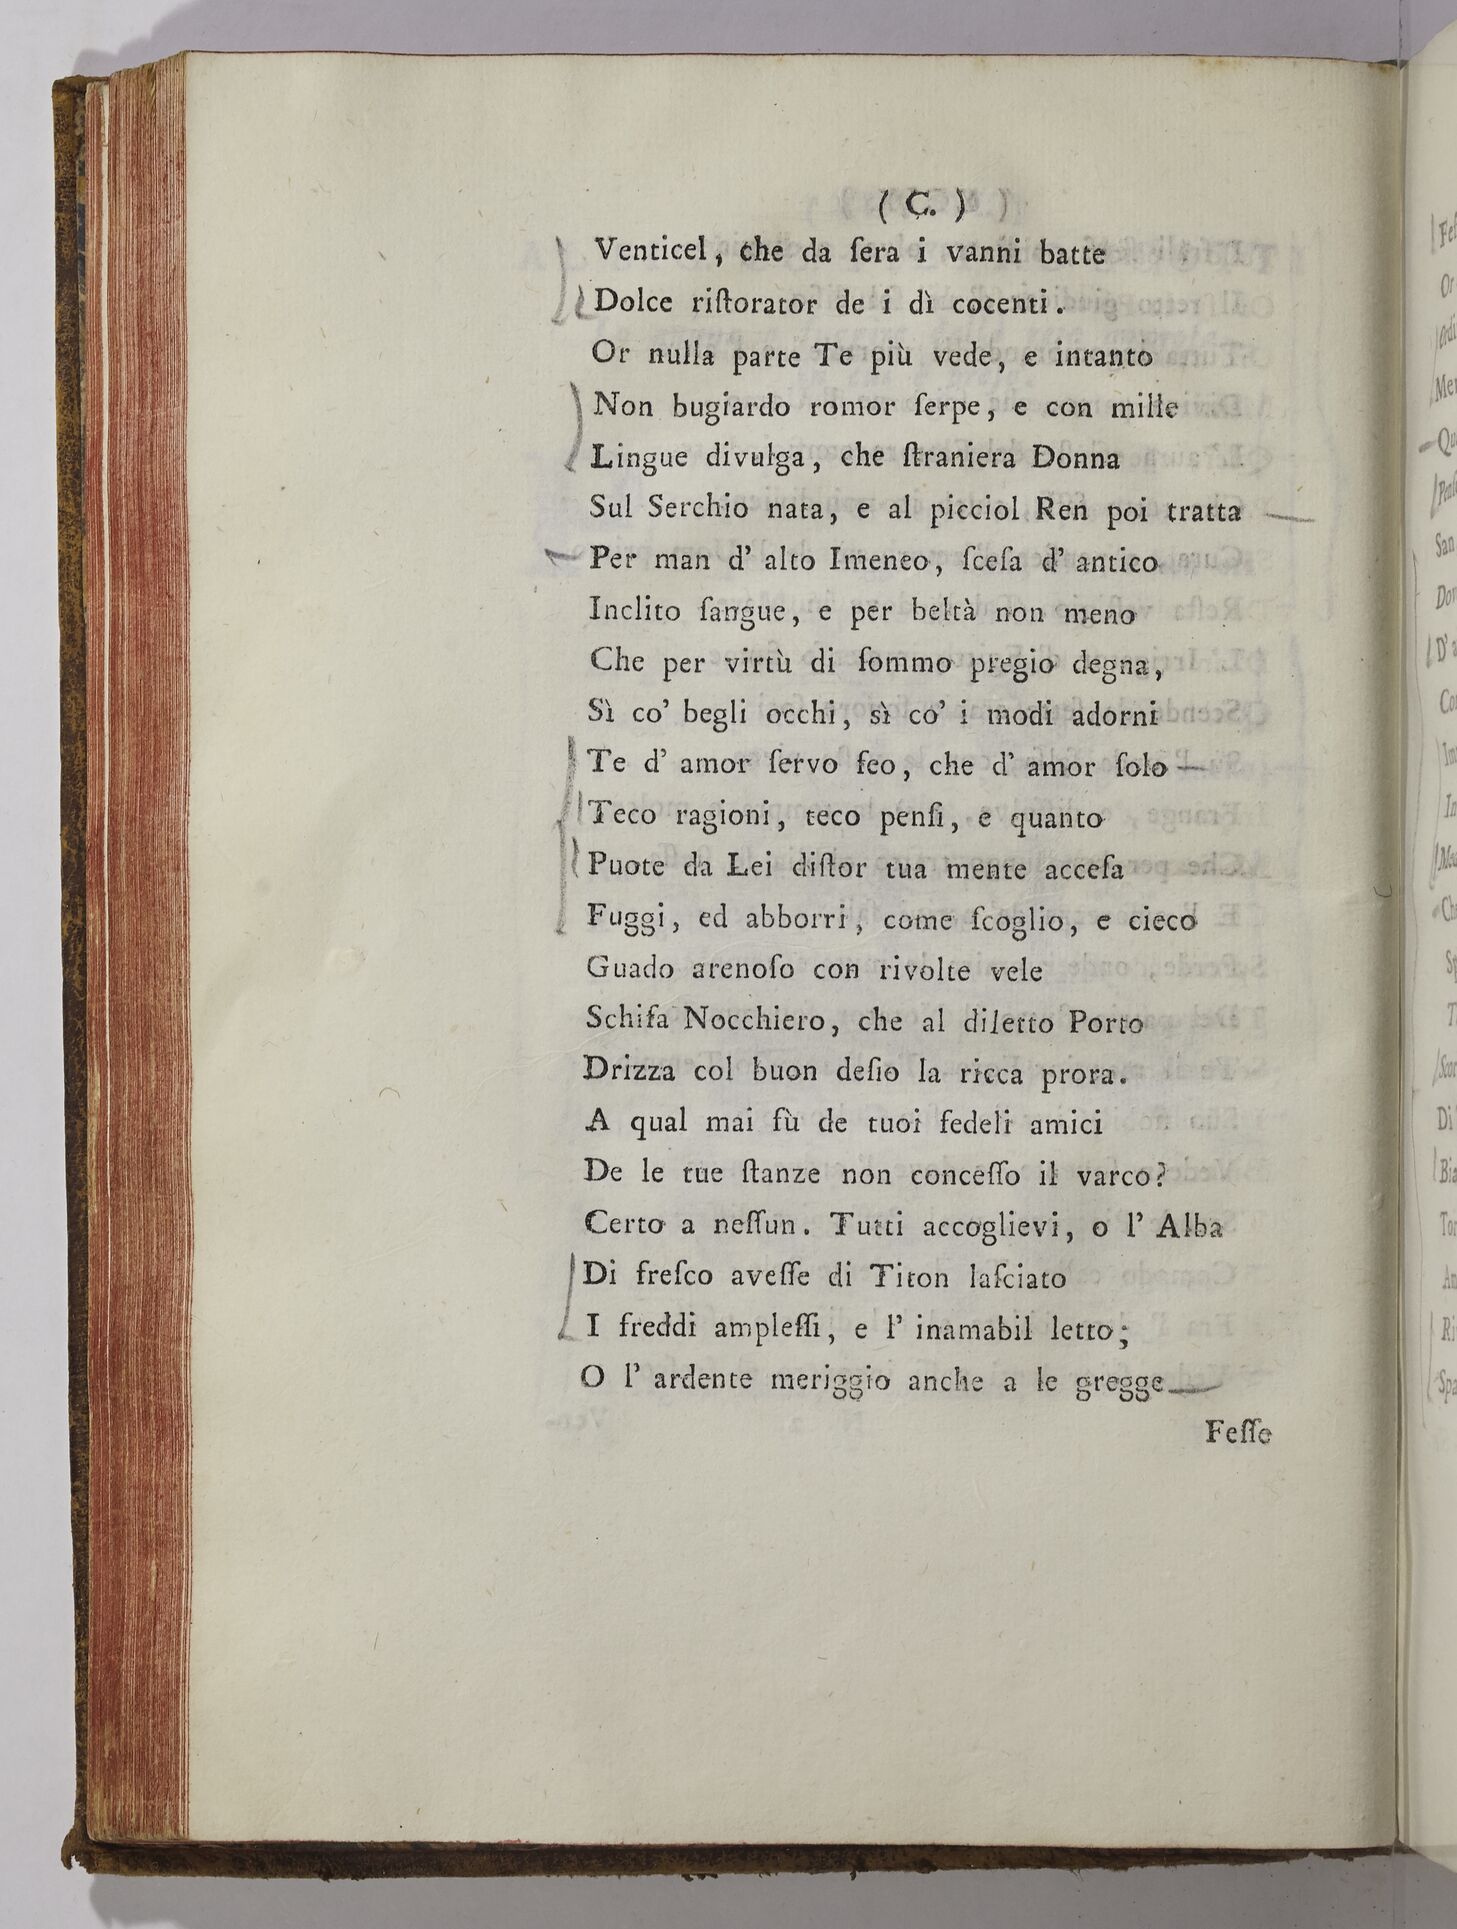 ( C. )
Venticel, che da ſera i vanni batte
Dolce riſtorator de i dì cocenti.
Or nulla parte Te più vede, e intanto
Non bugiardo romor ſerpe, e con mille
Lingue divulga, che ſtraniera Donna
Sul Serchio nata, e al picciol Ren poi tratta
Per man d' alto Imeneo, ſceſa d' antico
Inclito ſangue, e per beltà non meno
Che per virtù di ſommo pregio degna,
Sì co' begli occhi, sì co' i modi adorni
Te d' amor ſervo feo, che d' amor ſolo
Teco ragioni, teco penſi, e quanto
Puote da Lei diſtor tua mente acceſa
Fuggi, ed abborri, come ſcoglio, e cieco
Guado arenoſo con rivolte vele
Schifa Nocchiero, che al diletto Porto
Drizza col buon deſio la ricca prora.
A qual mai fù de tuoi fedeli amici
De le tue ſtanze non conceſſo il varco?
Certo a neſſun. Tutti accoglievi, o l' Alba
Di freſco aveſſe di Titon laſciato
I freddi ampleſſi, e l' inamabil letto;
O l' ardente meriggio anche a le gregge
Feſſe